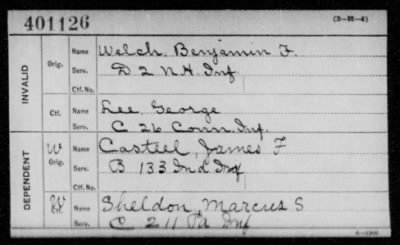 401126 (3-111-4)
INVALID
Orig. Name Welch, Benjamin F.
Serv. D 2 N.H. Inf
Ctf. No.
Ctf. Name Lee, George
Serv. C 26 Conn. Inf.
DEPENDENT
W Orig. Name Casteel, James F
Serv. B 133 Ind Inf
Ctf. No.
W Ctf. Name Sheldon, Marcus S
Serv. C 211 Pa Inf